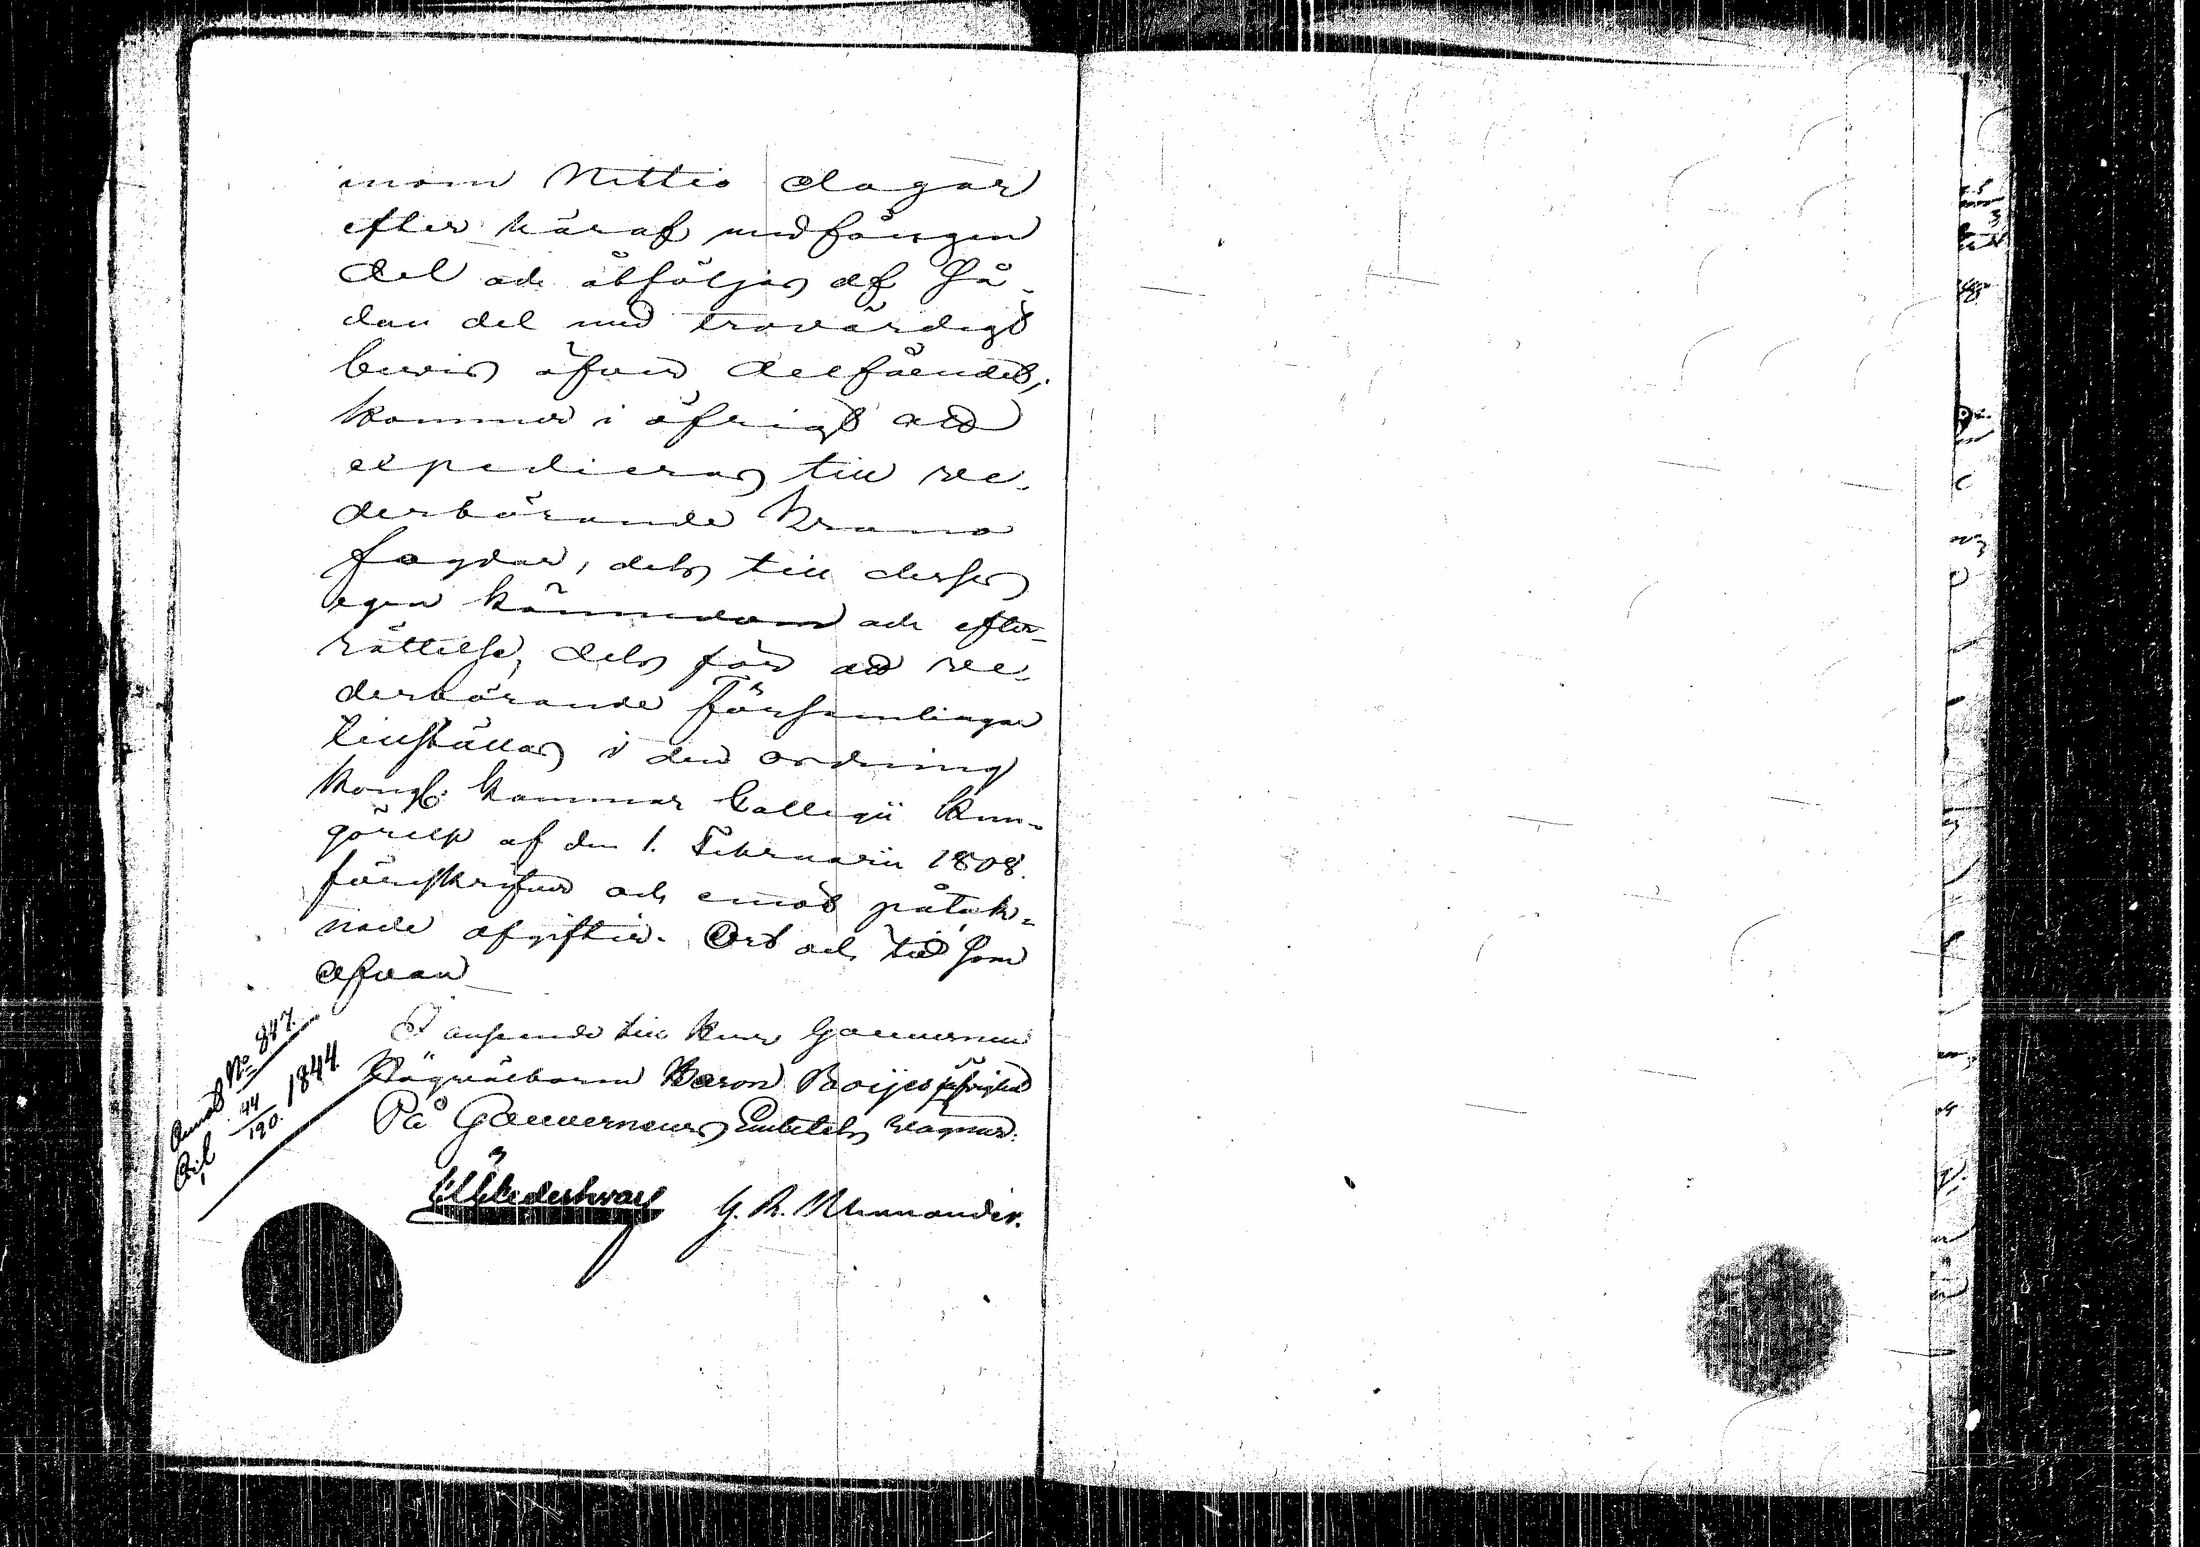 inom Nittio dagar
efter häraf undfången
del och åtföljas af så-
dan del med trovärdigt
bevis öfver delfåendet;
kommer i öfrigt att
expedieras till ve-
derbörande Krono
fogdar, dels till dessas
egen kännedom och efter-
rättelse, dels för att ve-
derbörande församlingar
tillställas i den ordning
Kongl. Kammar Collegii Kun-
görelse af den 1. Februarii 1808.
föreskrifver och emot påteck-
nade afgifter. Ort och tid som
ofvan
I anseende till Herr Gouverneuren
Högvälborne Baron Boijes
På Gouverneurs Embetets vägnar:
G. A.
No 847.
44/190. 1844.